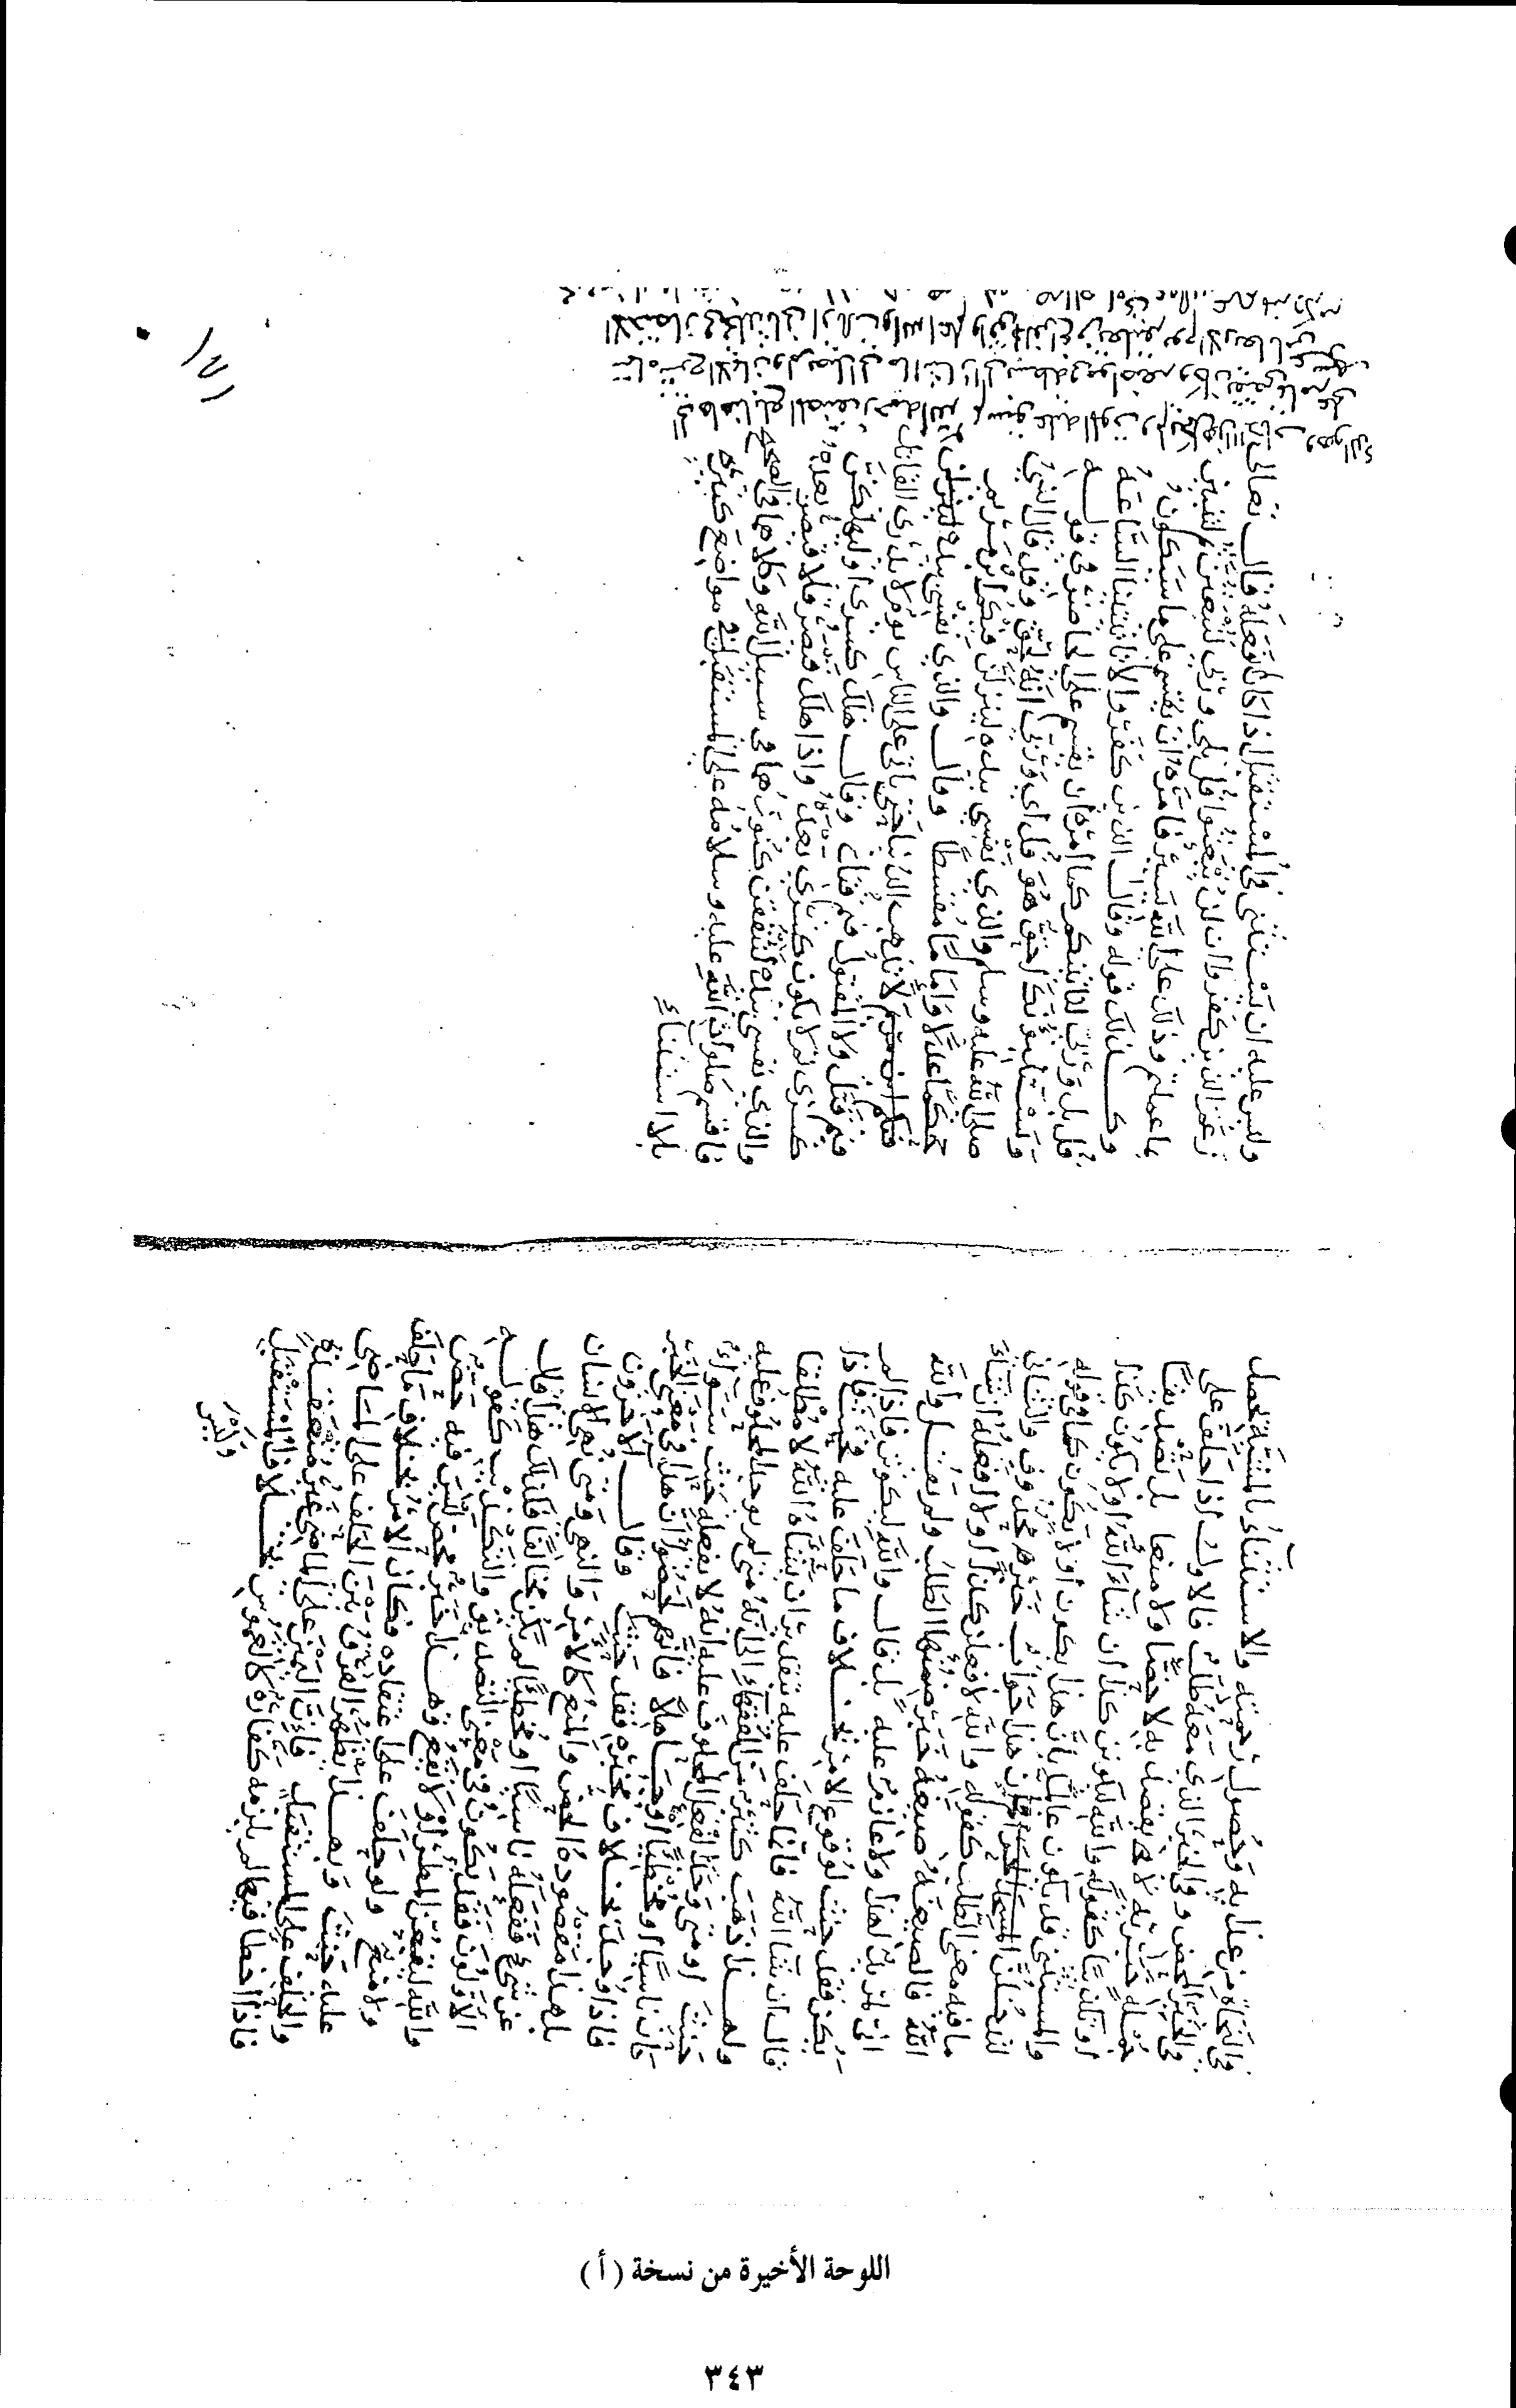 والنجاة من عذابه وحصول رحمته والاستثناء بالمشيئة يحصل
في الخبر المحض وفي الخبر الذي معه طلب فالاول اذا حلف على
جملة خبرية لا يقصد به لا حضا ولا منعا بل تصديقا
او تكذيبا كقوله والله ليكونن كذا ان شاء الله او لا يكون كذا
والمستثني قد يكون عالما بان هذا يكون او لا يكون كما في قوله
لتدخلن المسجد الحرام فان هذا جواب خبر محذوف والثاني
ما فيه معنى الطلب كقوله والله لافعلن كذا او لا افعله ان شاء
الله فالصيغة صيغة خبر ضمنها الطلب ولم يقل والله
اني لمريد لهذا ولا عازم عليه بل قال والله ليكونن فاذا لم
يكن فقد حنث لوقوع الامر بخلاف ما حلف عليه فحنث فاذا
قال ان شاء الله فانما حلف عليه بتقدير ان يشاء الله لا مطلقا
ولهذا ذهب كثير من الفقهاء الى انه متى لم يوجد المحلوف عليه
حنث او متى وجد الفعل المحلوف عليه انه لا يفعله حنث سواء
كان ناسيا او مخطئا او جاهلا فانهم لحظوا ان هذا في معنى الخبر
فاذا وجد بخلاف مخبره فقد حنث وقال الاخرون
بل هذا مقصوده الحض والمنع كالامر والنهي ومتى نهي الانسان
عن شيء ففعله ناسيا او مخطئا لم يكن مخالفا فكذلك هذا قال
الاولون فقد يكون في معنى التصديق والتكذيب كقوله
والله ليقعن المطر او لا يقع وهذا خبر محض ليس فيه حض
ولا منع ولو حلف على اعتقاده فكان الامر بخلاف ما حلف
عليه حنث وبهذا يظهر الفرق بين الحلف على الماضي
والحلف على المستقبل فان اليمين على الماضي غير منعقدة
فاذا اخطا فيها لم يلزمه كفارة كالغموس بخلاف المستقبل
وليس
وليس عليه ان يستثني في المستقبل اذا كان فعله قال تعالى
زعم الذين كفروا ان لن يبعثوا قل بلى وربي لتبعثن ثم لتنبؤن
بما عملتم وذلك على الله يسير فامره ان يقسم على ما سيكون
وكذلك قوله وقال الذين كفروا لا تاتينا الساعة
قل بلى وربي لتاتينكم كما امره ان يقسم على الحاضر في قوله
ويستنبؤنك احق هو قل اي وربي انه لحق وقد قال النبي
صلى الله عليه وسلم والذي نفسي بيده لينزلن فيكم ابن مريم
حكما عدلا واماما مقسطا وقال والذي نفسي بيده
لا تذهب الدنيا حتى ياتي على الناس يوم لا يدري القاتل
فيم قتل ولا المقتول فيم قتل وقال هلك كسرى او ليهلكن
كسرى ثم لا يكون كسرى بعده واذا هلك قيصر فلا قيصر بعده
والذي نفسي بيده لتنفقن كنوزهما في سبيل الله وكلاهما في الصحيح
فاقسم صلوات الله عليه وسلامه على المستقبل في مواضع كثيرة
بلا استثناء
١٧١
اللوحة الأخيرة من نسخة (أ)
٣٤٣